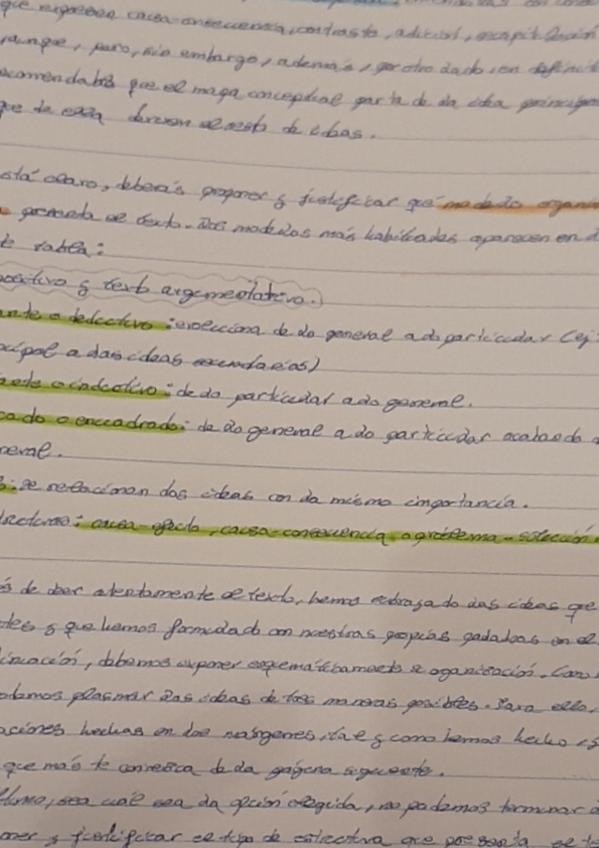 que expresen causa-consecuencia, contraste, adición, recapitulación
aunque, pero, sin embargo, además, por otro lado, en definit
ecomendable que el mapa conceptual parta de la idea principa
que de ella deriven el resto de ideas.
stá claro, deberás proponer y justificar qué modelo organi
presenta el texto. Los modelos más habituales aparecen en
te tabla:
positivo y texto argumentativo.
ante o deductivo: evoluciona de lo general a lo particular (ej:
ncipal a las ideas secundarias)
ante o inductivo: de lo particular a lo general.
cado o encuadrado: de lo general a lo particular acabando
neral.
o: se relacionan dos ideas con la misma importancia.
causa-efecto, causa-consecuencia o problema-solución
s de leer atentamente el texto, hemos subrayado las ideas que
tes y que hemos formulado con nuestras propias palabras en el
tinuación, debemos exponer esquemáticamente la organización. Como
odemos plasmar las ideas de tres maneras posibles. Para ello,
aciones hechas en los márgenes, tal y como hemos hecho
que más te convenza de la página siguiente.
ltimo, sea cual sea la opción elegida, no podemos terminar
oner y justificar el tipo de estructura que presenta el te